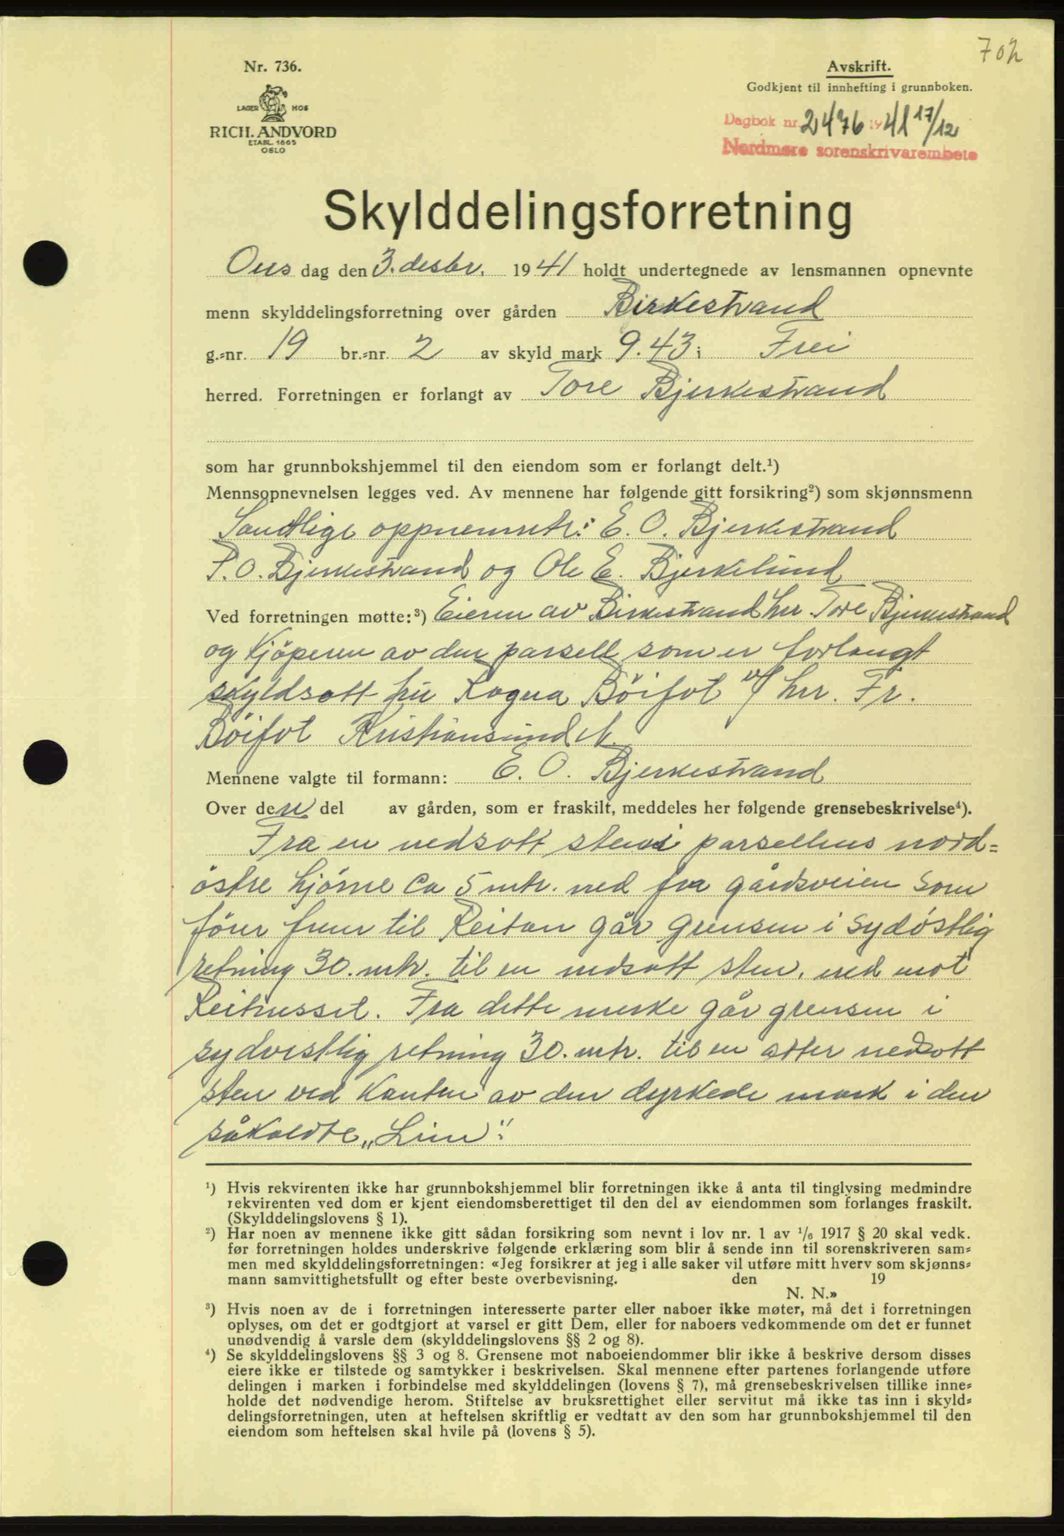 702
Nr. 736.
LAGER HOS
RICH. ANDVORD
ETABL. 1865
OSLO
Avskrift.
Godkjent til innhefting i grunnboken.
Dagbok nr. 2476 1941 17/12
Nordmøre sorenskrivarembete
Skylddelingsforretning
Ons dag den 3. desbr. 1941 holdt undertegnede av lensmannen opnevnte
menn skylddelingsforretning over gården Birkestrand
g.-nr. 19 br.-nr. 2 av skyld mark 9.43 i Frei
herred. Forretningen er forlangt av Tore Bjerkestrand
som har grunnbokshjemmel til den eiendom som er forlangt delt.¹)
Mennsopnevnelsen legges ved. Av mennene har følgende gitt forsikring²) som skjønnsmenn
Samtlige oppnevnte: E. O. Bjerkestrand
P. O. Bjerkestrand og Ole E. Bjerkelund
Ved forretningen møtte:³) Eieren av Birkestrand herr Tore Bjerkestrand
og kjøperen av den parsell som er forlangt
skyldsatt fru Ragna Böifot v/ herr. Fr.
Böifot Kristiansund N
Mennene valgte til formann: E. O. Bjerkestrand
Over den del av gården, som er fraskilt, meddeles her følgende grensebeskrivelse⁴).
Fra en nedsatt sten i parsellens nord=
östre hjörne ca 5 mtr. ned fra gårdsveien som
förer frem til Reitan går grensen i sydöstlig
retning 30. mtr. til en nedsatt sten, ned mot
Reitnesset. Fra dette merke går grensen i
sydvestlig retning 30. mtr. til en atter nedsatt
sten ved kanten av den dyrkede mark i den
såkaldte „Lien".
¹) Hvis rekvirenten ikke har grunnbokshjemmel blir forretningen ikke å anta til tinglysing medmindre
rekvirenten ved dom er kjent eiendomsberettiget til den del av eiendommen som forlanges fraskilt.
(Skylddelingslovens § 1).
²) Har noen av mennene ikke gitt sådan forsikring som nevnt i lov nr. 1 av ¹/₆ 1917 § 20 skal vedk.
før forretningen holdes underskrive følgende erklæring som blir å sende inn til sorenskriveren sam=
men med skylddelingsforretningen: «Jeg forsikrer at jeg i alle saker vil utføre mitt hverv som skjønns=
mann samvittighetsfullt og efter beste overbevisning. den 19
N. N.»
³) Hvis noen av de i forretningen interesserte parter eller naboer ikke møter, må det i forretningen
oplyses, om det er godtgjort at varsel er gitt Dem, eller for naboers vedkommende om det er funnet
unødvendig å varsle dem (skylddelingslovens §§ 2 og 8).
⁴) Se skylddelingslovens §§ 3 og 8. Grensene mot naboeiendommer blir ikke å beskrive dersom disses
eiere ikke er tilstede og samtykker i beskrivelsen. Skal mennene efter partenes forlangende utføre
delingen i marken i forbindelse med skylddelingen (lovens § 7), må grensebeskrivelsen tillike inne=
holde det nødvendige herom. Stiftelse av bruksrettighet eller servitut må ikke tas inn i skyld=
delingsforretningen, uten at heftelsen skriftlig er vedtatt av den som har grunnbokshjemmel til den
eiendom som heftelsen skal hvile på (lovens § 5).